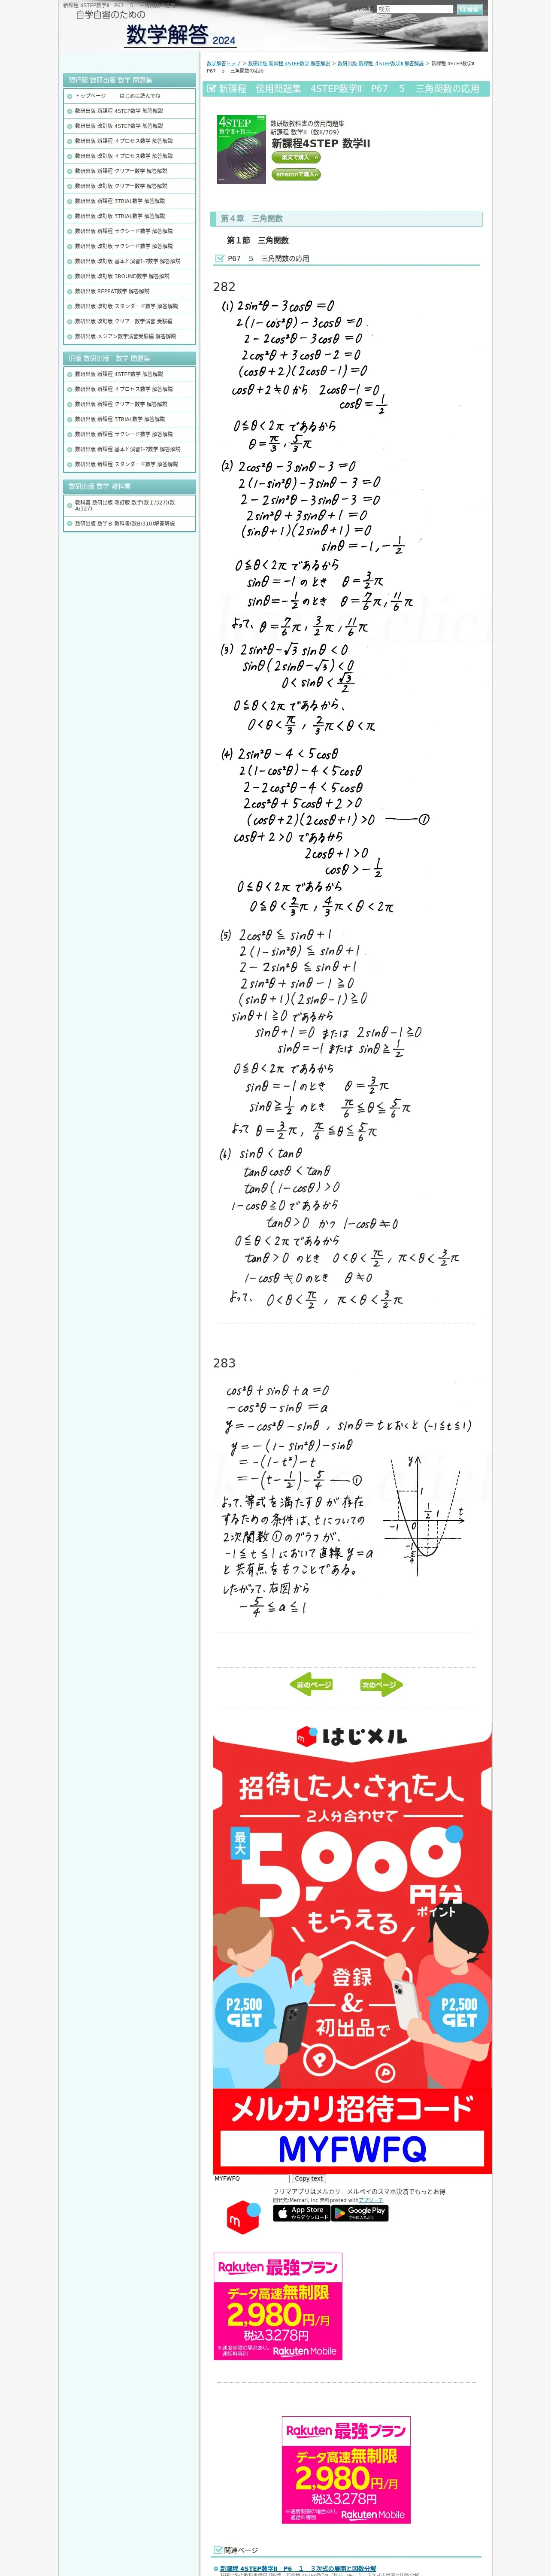 新課程 4STEP数学Ⅱ P67 5 三角関数の応用
自学自習のための
数学解答 2024
検索
検索
数学解答トップ > 数研出版 新課程 4STEP数学 解答解説 > 数研出版 新課程 4STEP数学Ⅱ 解答解説 > 新課程 4STEP数学Ⅱ
P67 5 三角関数の応用
現行版 数研出版 数学 問題集
トップページ － はじめに読んでね －
数研出版 新課程 4STEP数学 解答解説
数研出版 改訂版 4STEP数学 解答解説
数研出版 新課程 4プロセス数学 解答解説
数研出版 改訂版 4プロセス数学 解答解説
数研出版 新課程 クリアー数学 解答解説
数研出版 改訂版 クリアー数学 解答解説
数研出版 新課程 3TRIAL数学 解答解説
数研出版 改訂版 3TRIAL数学 解答解説
数研出版 新課程 サクシード数学 解答解説
数研出版 改訂版 サクシード数学 解答解説
数研出版 改訂版 基本と演習ﾃｰﾏ数学 解答解説
数研出版 改訂版 3ROUND数学 解答解説
数研出版 REPEAT数学 解答解説
数研出版 改訂版 スタンダード数学 解答解説
数研出版 改訂版 クリアー数学演習 受験編
数研出版 メジアン数学演習受験編 解答解説
旧版 数研出版 数学 問題集
数研出版 新課程 4STEP数学 解答解説
数研出版 新課程 4プロセス数学 解答解説
数研出版 新課程 クリアー数学 解答解説
数研出版 新課程 3TRIAL数学 解答解説
数研出版 新課程 サクシード数学 解答解説
数研出版 新課程 基本と演習ﾃｰﾏ数学 解答解説
数研出版 新課程 スタンダード数学 解答解説
数研出版 数学 教科書
教科書 数研出版 改訂版 数学(数Ⅰ/327)(数
A/327)
数研出版 数学Ｂ 教科書(数B/310)解答解説
新課程 傍用問題集 4STEP数学Ⅱ P67 5 三角関数の応用
4STEP
数学Ⅱ+B
数研版教科書の傍用問題集
新課程 数学Ⅱ（数II/709）
新課程4STEP 数学II
楽天で購入
amazonで購入
第４章 三角関数
第１節 三角関数
P67 5 三角関数の応用
282
(1) 2sin²θ－3cosθ＝0
2(1－cos²θ)－3cosθ＝0
2－2cos²θ－3cosθ＝0
2cos²θ＋3cosθ－2＝0
(cosθ＋2)(2cosθ－1)＝0
cosθ＋2≠0から 2cosθ－1＝0
cosθ＝1/2
0≦θ<2π であるから
θ＝π/3, 5/3π
(2) 2cos²θ－3sinθ－3＝0
2(1－sin²θ)－3sinθ－3＝0
2－2sin²θ－3sinθ－3＝0
2sin²θ＋3sinθ＋1＝0
(sinθ＋1)(2sinθ＋1)＝0
sinθ＝－1, －1/2
0≦θ<2π であるから
sinθ＝－1 のとき θ＝3/2π
sinθ＝－1/2 のとき θ＝7/6π, 11/6π
よって、θ＝7/6π, 3/2π, 11/6π
(3) 2sin²θ－√3 sinθ<0
sinθ(2sinθ－√3)<0
0<sinθ<√3/2
0≦θ<2π であるから、
0<θ<π/3, 2/3π<θ<π
(4) 2sin²θ－4<5cosθ
2(1－cos²θ)－4<5cosθ
2－2cos²θ－4<5cosθ
2cos²θ＋5cosθ＋2>0
(cosθ＋2)(2cosθ＋1)>0 ——①
cosθ＋2>0 であるから
2cosθ＋1>0
cosθ>－1/2
0≦θ<2π であるから
0≦θ<2/3π, 4/3π<θ<2π
(5) 2cos²θ≦sinθ＋1
2(1－sin²θ)≦sinθ＋1
2－2sin²θ≦sinθ＋1
2sin²θ＋sinθ－1≧0
(sinθ＋1)(2sinθ－1)≧0
sinθ＋1≧0 であるから
sinθ＋1＝0 または 2sinθ－1≧0
sinθ＝－1 または sinθ≧1/2
0≦θ<2π であるから
sinθ＝－1 のとき θ＝3/2π
sinθ≧1/2 のとき π/6≦θ≦5/6π
よって θ＝3/2π, π/6≦θ≦5/6π
(6) sinθ<tanθ
tanθcosθ<tanθ
tanθ(1－cosθ)>0
1－cosθ≧0 であるから
tanθ>0 かつ 1－cosθ≠0
0≦θ<2π であるから
tanθ>0 のとき 0<θ<π/2, π<θ<3/2π
1－cosθ≠0 のとき θ≠0
よって、0<θ<π/2, π<θ<3/2π
283
cos²θ＋sinθ＋a＝0
－cos²θ－sinθ＝a
y＝－cos²θ－sinθ, sinθ＝t とおくと (－1≦t≦1)
y＝－(1－sin²θ)－sinθ
＝－(1－t²)－t
＝－(t－1/2)－5/4 ——①
よって、等式を満たすθが存在
するための条件は、tについての
2次関数①のグラフが、
－1≦t≦1において直線 y＝a
と共有点をもつことである。
したがって、右図から
－5/4≦a≦1
y
1
1/2
1
t
－1
0
－1
－5/4
前のページ
次のページ
はじメル
招待した人・された人
2人合わせて
最大
5,000円分
ポイント
もらえる
登録
&
初出品で
P2,500
GET
P2,500
GET
メルカリ招待コード
MYFWFQ
MYFWFQ
Copy text
フリマアプリはメルカリ - メルペイのスマホ決済でもっとお得
開発元:Mercari, Inc.無料posted withアプリーチ
App Store
からダウンロード
Google Play
で手に入れよう
Rakuten 最強プラン
データ高速無制限
2,980円/月
税込3,278円
※速度制限の場合あり。
通話料等別
Rakuten Mobile
Rakuten 最強プラン
データ高速無制限
2,980円/月
税込3,278円
※速度制限の場合あり。
通話料等別
Rakuten Mobile
関連ページ
新課程 4STEP数学II P6 1 3次式の展開と因数分解